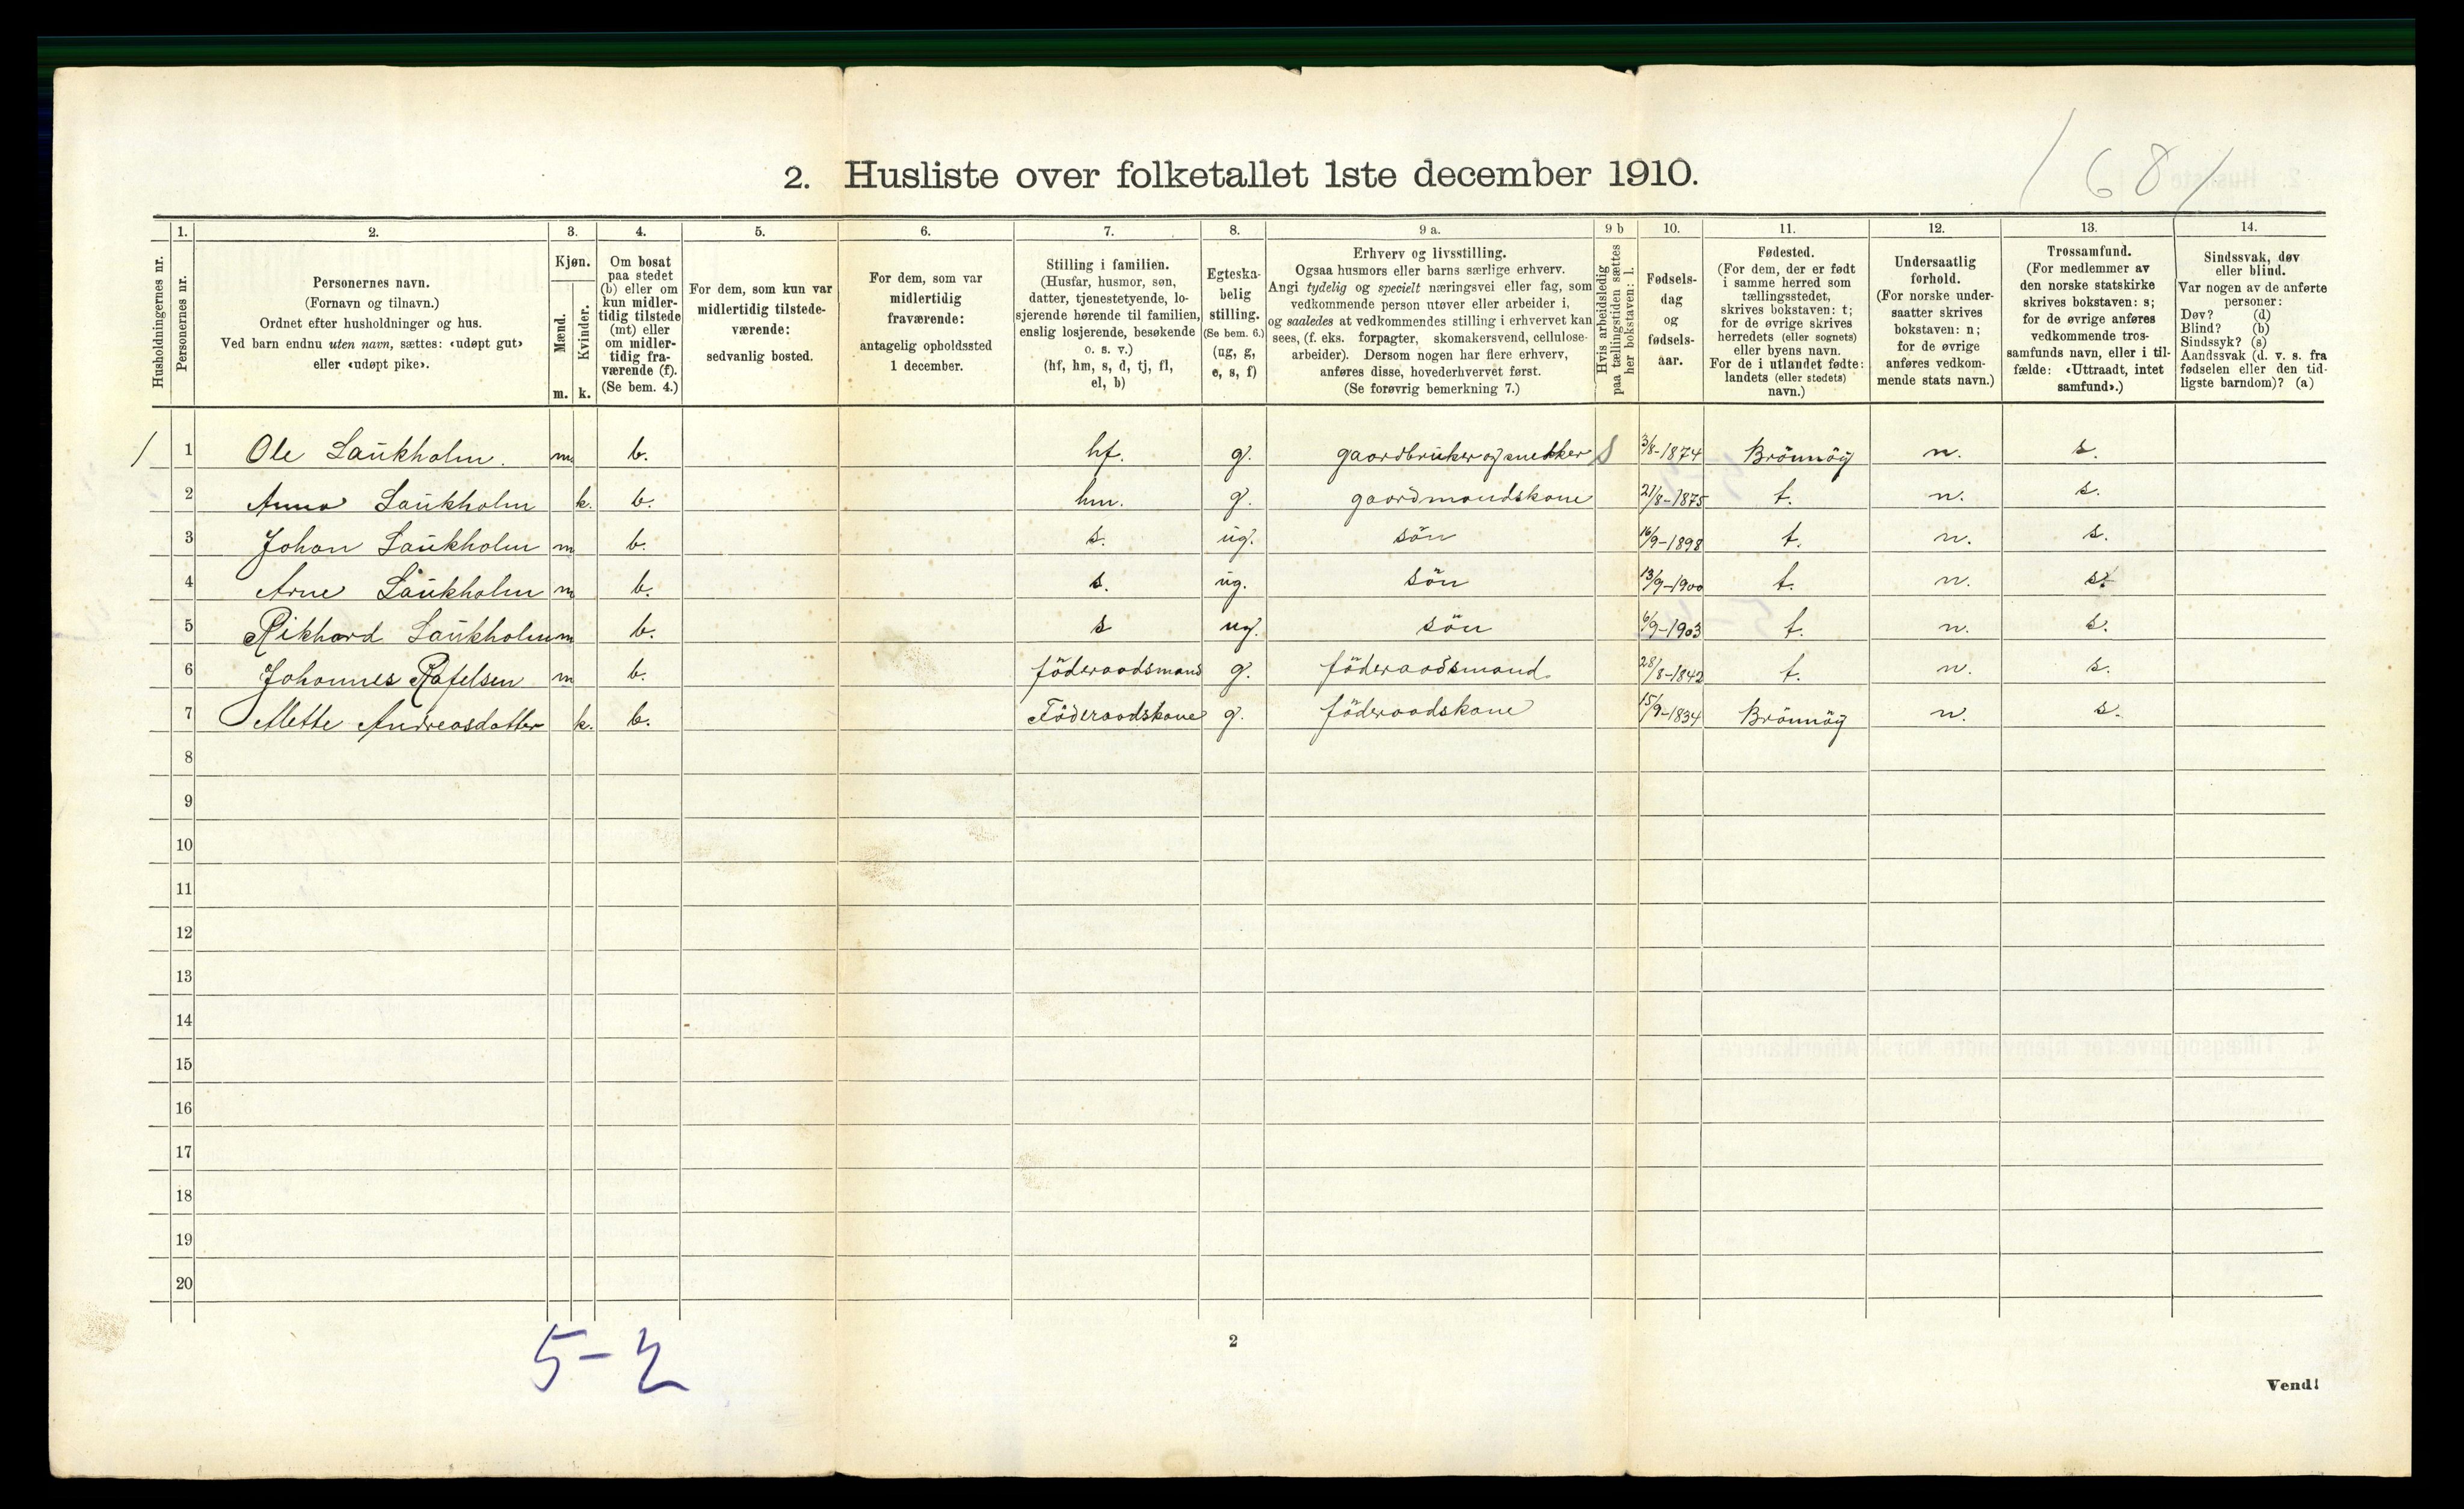 168/
2. Husliste over folketallet 1ste december 1910.
Husholdningernes nr.
1. Personernes nr.
2. Personernes navn. (Fornavn og tilnavn.) Ordnet efter husholdninger og hus. Ved barn endnu uten navn, sættes: «udøpt gut» eller «udøpt pike».
3. Kjøn. Mænd. m. Kvinder. k.
4. Om bosat paa stedet (b) eller om kun midlertidig tilstede (mt) eller om midlertidig fraværende (f). (Se bem. 4.)
5. For dem, som kun var midlertidig tilstedeværende: sedvanlig bosted.
6. For dem, som var midlertidig fraværende: antagelig opholdssted 1 december.
7. Stilling i familien. (Husfar, husmor, søn, datter, tjenestetyende, losjerende hørende til familien, enslig losjerende, besøkende o. s. v.) (hf, hm, s, d, tj, fl, el, b)
8. Egteskabelig stilling. (Se bem. 6.) (ug, g, e, s, f)
9 a. Erhverv og livsstilling. Ogsaa husmors eller barns særlige erhverv. Angi tydelig og specielt næringsvei eller fag, som vedkommende person utøver eller arbeider i, og saaledes at vedkommendes stilling i erhvervet kan sees, (f. eks. forpagter, skomakersvend, cellulosearbeider). Dersom nogen har flere erhverv, anføres disse, hovederhvervet først. (Se forøvrig bemerkning 7.)
9 b Hvis arbeidsledig paa tællingstiden sættes her bokstaven: l.
10. Fødselsdag og fødselsaar.
11. Fødested. (For dem, der er født i samme herred som tællingsstedet, skrives bokstaven: t; for de øvrige skrives herredets (eller sognets) eller byens navn. For de i utlandet fødte: landets (eller stedets) navn.)
12. Undersaatlig forhold. (For norske undersaatter skrives bokstaven: n; for de øvrige anføres vedkommende stats navn.)
13. Trossamfund. (For medlemmer av den norske statskirke skrives bokstaven: s; for de øvrige anføres vedkommende trossamfunds navn, eller i tilfælde: «Uttraadt, intet samfund».)
14. Sindssvak, døv eller blind. Var nogen av de anførte personer: Døv? (d) Blind? (b) Sindssyk? (s) Aandssvak (d. v. s. fra fødselen eller den tidligste barndom)? (a)
1 1 Ole Laukholm. m b. hf. g. gaardbruker og snekker S 3/8-1874 Brönnöy n. s.
2 Anna Laukholm k. b. hm. g. gaardmandskone 21/8-1875 t. n. s.
3 Johan Laukholm m b. s. ug. sön 16/9-1898 t. n. s.
4 Arne Laukholm m b. s. ug. sön 13/9-1900 t. n. s.
5 Rikhard Laukholm m b. s ug. sön 6/9-1903 t. n. s.
6 Johannes Rafelsen m b. föderaadsmand g. föderaadsmand 28/8-1842 t. n. s.
7 Mette Andreasdatter k. b. Föderaadskone g. föderaadskone 15/9-1834 Brönnöy n. s.
8
9
10
11
12
13
14
15
16
17
18
19
20
5-2
2
Vend!